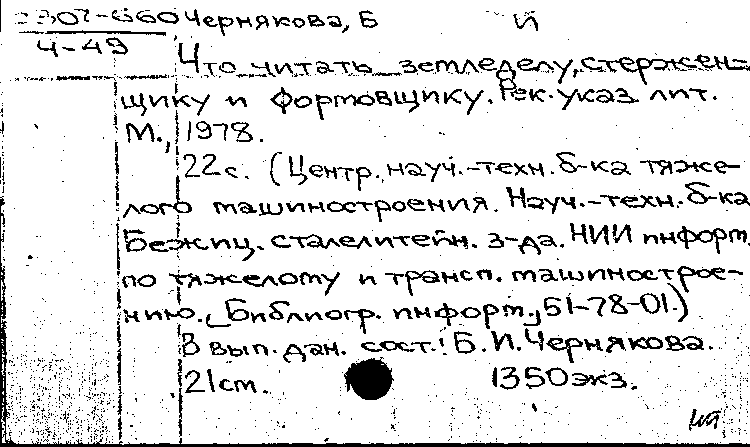 Чернякова, Б И
Ч-49
Что читать земледелу, стержен-
щику и формовщику. Рек. указ. лит.
М., 1978.
22 с. (Центр. науч.-техн. б-ка тяже-
лого машиностроения. Науч.-техн. б-ка
Бежиц. сталелитейн. з-да. НИИ информ.
по тяжелому и трансп. машинострое-
нию. Библиогр. информ., 61-78-01.)
В вып. дан. сост.: Б. И. Чернякова.
21 см. 1350 экз.